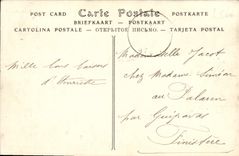 POST CARD Carte Postale POSTKARTE
BRIEFKAART — POSTKAART
CARTOLINA POSTALE — ОТКРЫТОЕ ПИСЬМО — TARJETA POSTAL
Mademoiselle Jacot
chez Madame
au
par Guipavas
Finistère
Mille bons baisers
d'Henriette